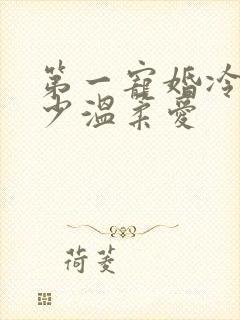 第一寵婚冷
少溫柔愛
荷菱